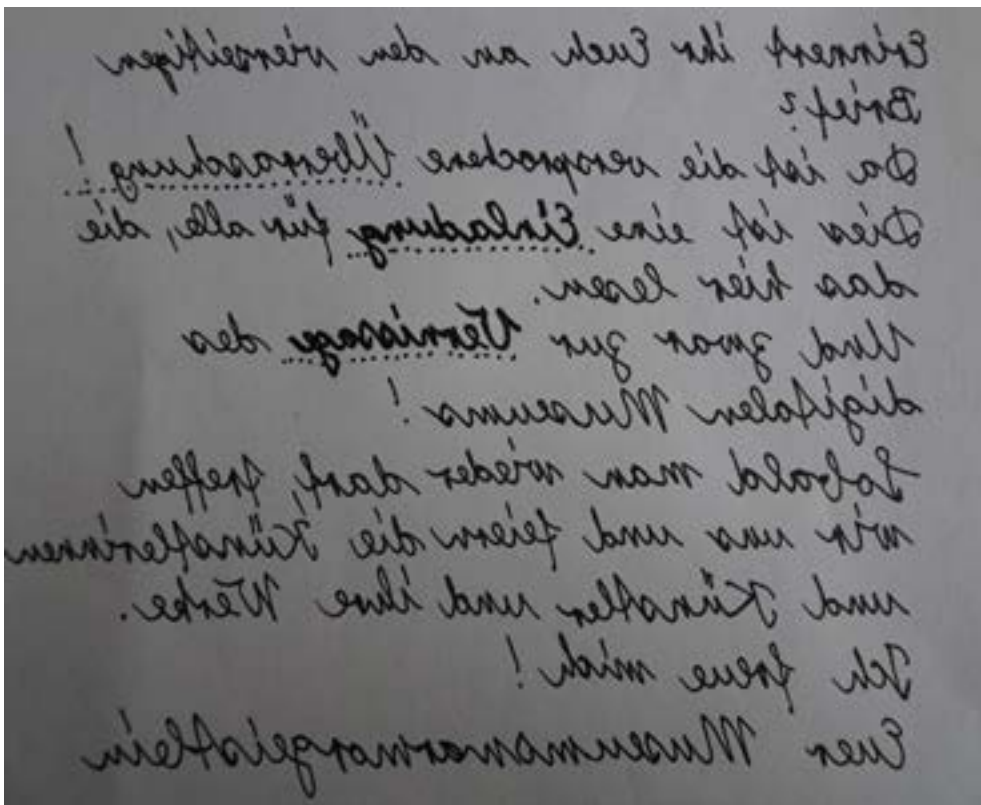 Erinnert ihr Euch an den vierseitigen
Brief?
Da ist die versprochene Überraschung!
Dies ist eine Einladung für alle, die
das hier lesen.
Und zwar zur Vernissage des
digitalen Museums!
Sobald man wieder darf, treffen
wir uns und feiern die Künstlerinnen
und Künstler und ihre Werke.
Ich freue mich!
Euer Museumsmarmorgeistlein